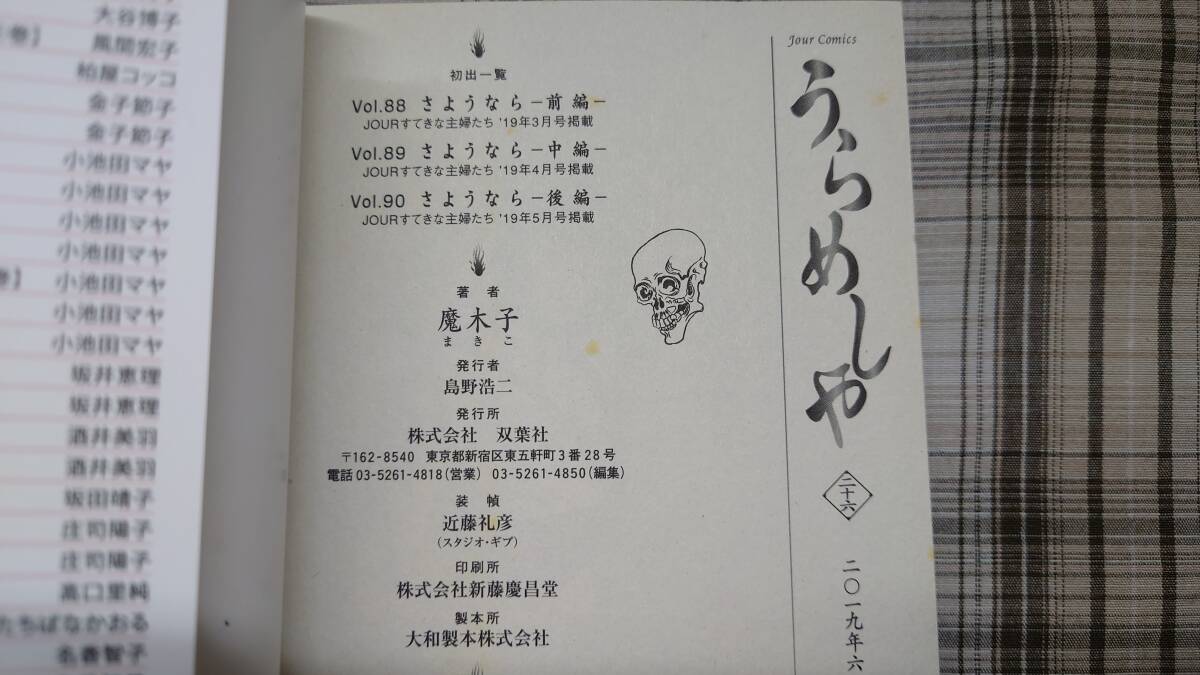 Jour Comics
うらめしや
二十六
二〇一九年六
初出一覧
Vol.88 さようなら−前編−
JOURすてきな主婦たち '19年3月号掲載
Vol.89 さようなら−中編−
JOURすてきな主婦たち '19年4月号掲載
Vol.90 さようなら−後編−
JOURすてきな主婦たち '19年5月号掲載
著者
魔木子
まきこ
発行者
島野浩二
発行所
株式会社 双葉社
〒162-8540 東京都新宿区東五軒町3番28号
電話03-5261-4818(営業) 03-5261-4850(編集)
装幀
近藤礼彦
(スタジオ・ギブ)
印刷所
株式会社新藤慶昌堂
製本所
大和製本株式会社
大谷博子
巻】
風間宏子
柏屋コッコ
金子節子
金子節子
小池田マヤ
小池田マヤ
小池田マヤ
小池田マヤ
巻】
小池田マヤ
小池田マヤ
小池田マヤ
坂井恵理
坂井恵理
酒井美羽
酒井美羽
坂田靖子
庄司陽子
庄司陽子
高口里純
たちばなかおる
名香智子